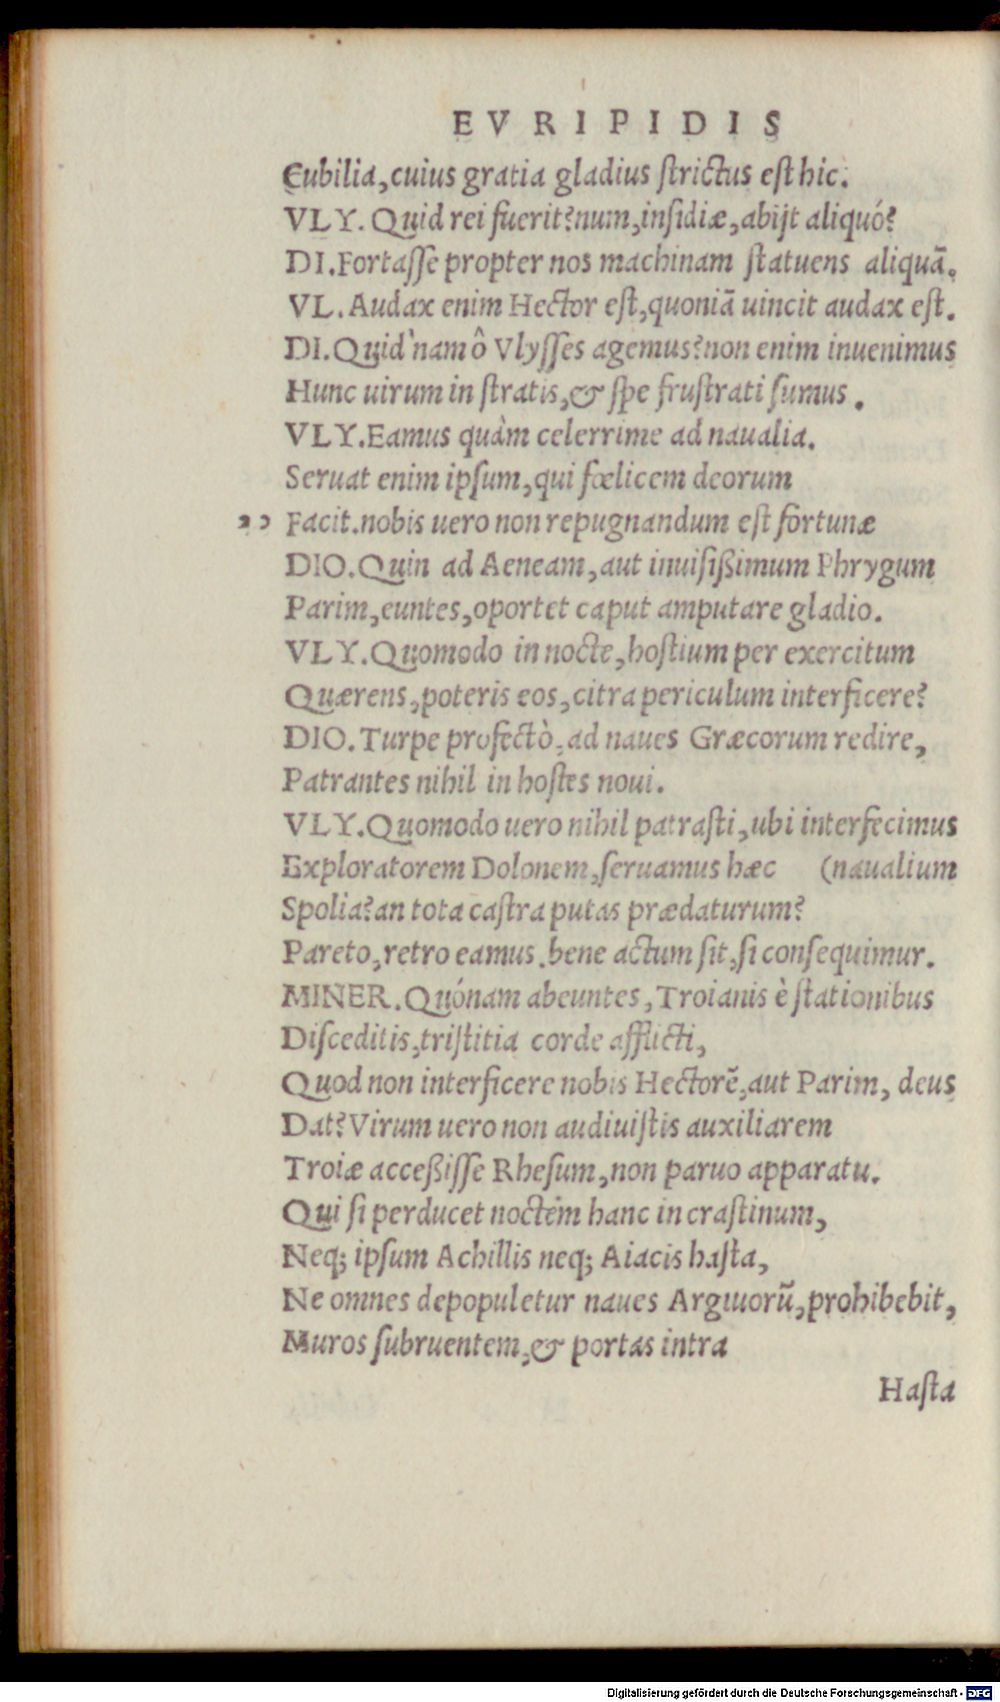 EVRIPIDIS
Cubilia, cuius gratia gladius ſtrictus eſt hic.
VLY. Quid rei fuerit? num, inſidiæ, abijt aliquó?
DI. Fortaſſe propter nos machinam ſtatuens aliquā.
VL. Audax enim Hector eſt, quoniā uincit audax eſt.
DI. Quid'nam ô Vlyſſes agemus? non enim inuenimus
Hunc uirum in ſtratis, & ſpe fruſtrati ſumus.
VLY. Eamus quàm celerrime ad naualia.
Seruat enim ipſum, qui fœlicem deorum
,, Facit. nobis uero non repugnandum eſt fortunæ
DIO. Quin ad Aeneam, aut inuiſiſsimum Phrygum
Parim, euntes, oportet caput amputare gladio.
VLY. Quomodo in nocte, hoſtium per exercitum
Quærens, poteris eos, citra periculum interficere?
DIO. Turpe profectò, ad naues Græcorum redire,
Patrantes nihil in hoſtes noui.
VLY. Quomodo uero nihil patraſti, ubi interfecimus
Exploratorem Dolonem, ſeruamus hæc (naualium
Spolia? an tota caſtra putas prædaturum?
Pareto, retro eamus. bene actum ſit, ſi conſequimur.
MINER. Quónam abeuntes, Troianis è ſtationibus
Diſceditis, triſtitia corde afflicti,
Quod non interficere nobis Hectorē, aut Parim, deus
Dat? Virum uero non audiuiſtis auxiliarem
Troiæ acceſsiſſe Rheſum, non paruo apparatu.
Qui ſi perducet noctem hanc in craſtinum,
Neq; ipſum Achillis neq; Aiacis haſta,
Ne omnes depopuletur naues Argiuorū, prohibebit,
Muros ſubruentem, & portas intra
Haſta
Digitalisierung gefördert durch die Deutsche Forschungsgemeinschaft - DFG